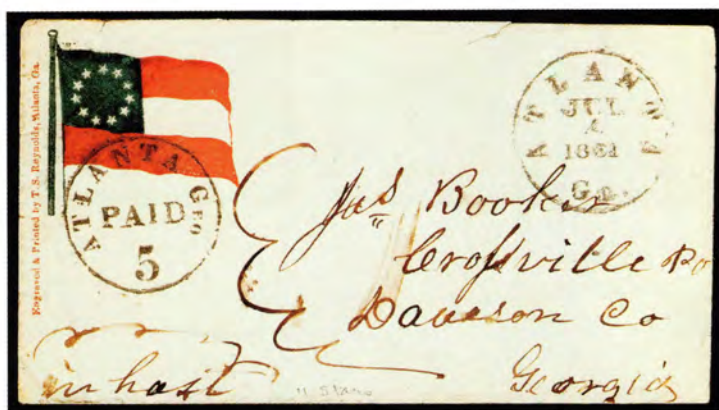 Engraved & Printed by T. S. Reynolds, Atlanta, Ga.
ATLANTA GEO
PAID
5
ATLANTA
JUL
4
1861
Ga.
Jas Booker
Crossville Po
Dawson Co
Georgia
in hast